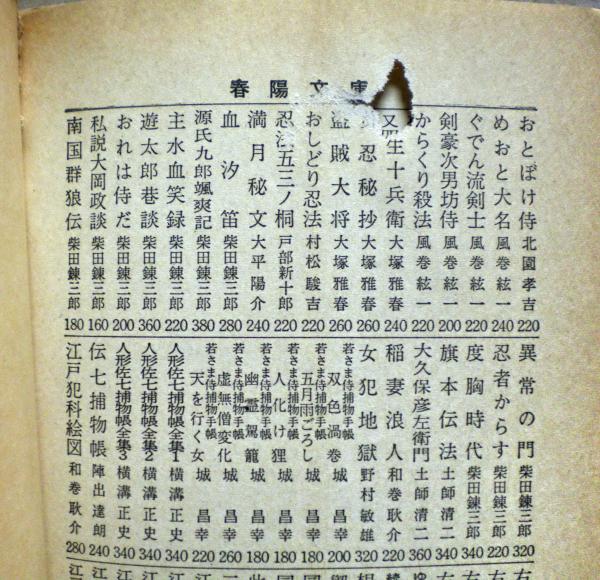 春陽文庫
おとぼけ侍 北園孝吉 220
めおと大名 風巻絃一 240
ぐでん流剣士 風巻絃一 220
剣豪次男坊侍 風巻絃一 200
からくり殺法 風巻絃一 220
又四生十兵衛 大塚雅春 240
忍秘抄 大塚雅春 260
盗賊大将 大塚雅春 260
おしどり忍法 村松駿吉 220
忍法五三ノ桐 戸部新十郎 220
満月秘文 大平陽介 240
血汐笛 柴田錬三郎 280
源氏九郎颯爽記 柴田錬三郎 380
主水血笑録 柴田錬三郎 220
遊太郎巷談 柴田錬三郎 360
おれは侍だ 柴田錬三郎 200
私説大岡政談 柴田錬三郎 160
南国群狼伝 柴田錬三郎 180
異常の門 柴田錬三郎 320
忍者からす 柴田錬三郎 220
度胸時代 柴田錬三郎 220
旗本伝法 土師清二 340
大久保彦左衛門 土師清二 360
稲妻浪人 和巻耿介 220
女犯地獄 野村敏雄 320
若さま侍捕物手帳 双色渦巻 城昌幸 200
若さま侍捕物手帳 五月雨ごろし 城昌幸 180
若さま侍捕物手帳 人化け狸 城昌幸 180
若さま侍捕物手帳 幽霊駕籠 城昌幸 180
若さま侍捕物手帳 虚無僧変化 城昌幸 260
若さま侍捕物手帳 天を行く女 城昌幸 220
人形佐七捕物帳全集1 横溝正史 340
人形佐七捕物帳全集2 横溝正史 340
人形佐七捕物帳全集3 横溝正史 340
伝七捕物帳 陣出達朗 240
江戸犯科絵図 和巻耿介 280